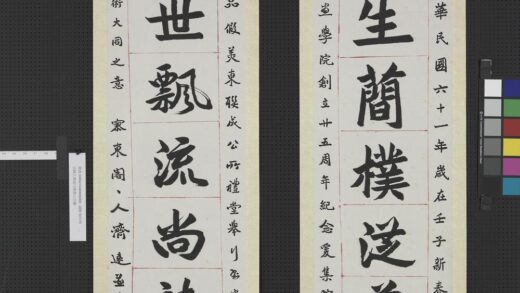 華民國六十一年歲在壬子新春
生簡樸從
畫學院創立廿五周年紀念爰集院
品假美東聯成公所禮堂舉行
世飄流尚
術大同之意 東閣人濟遠並